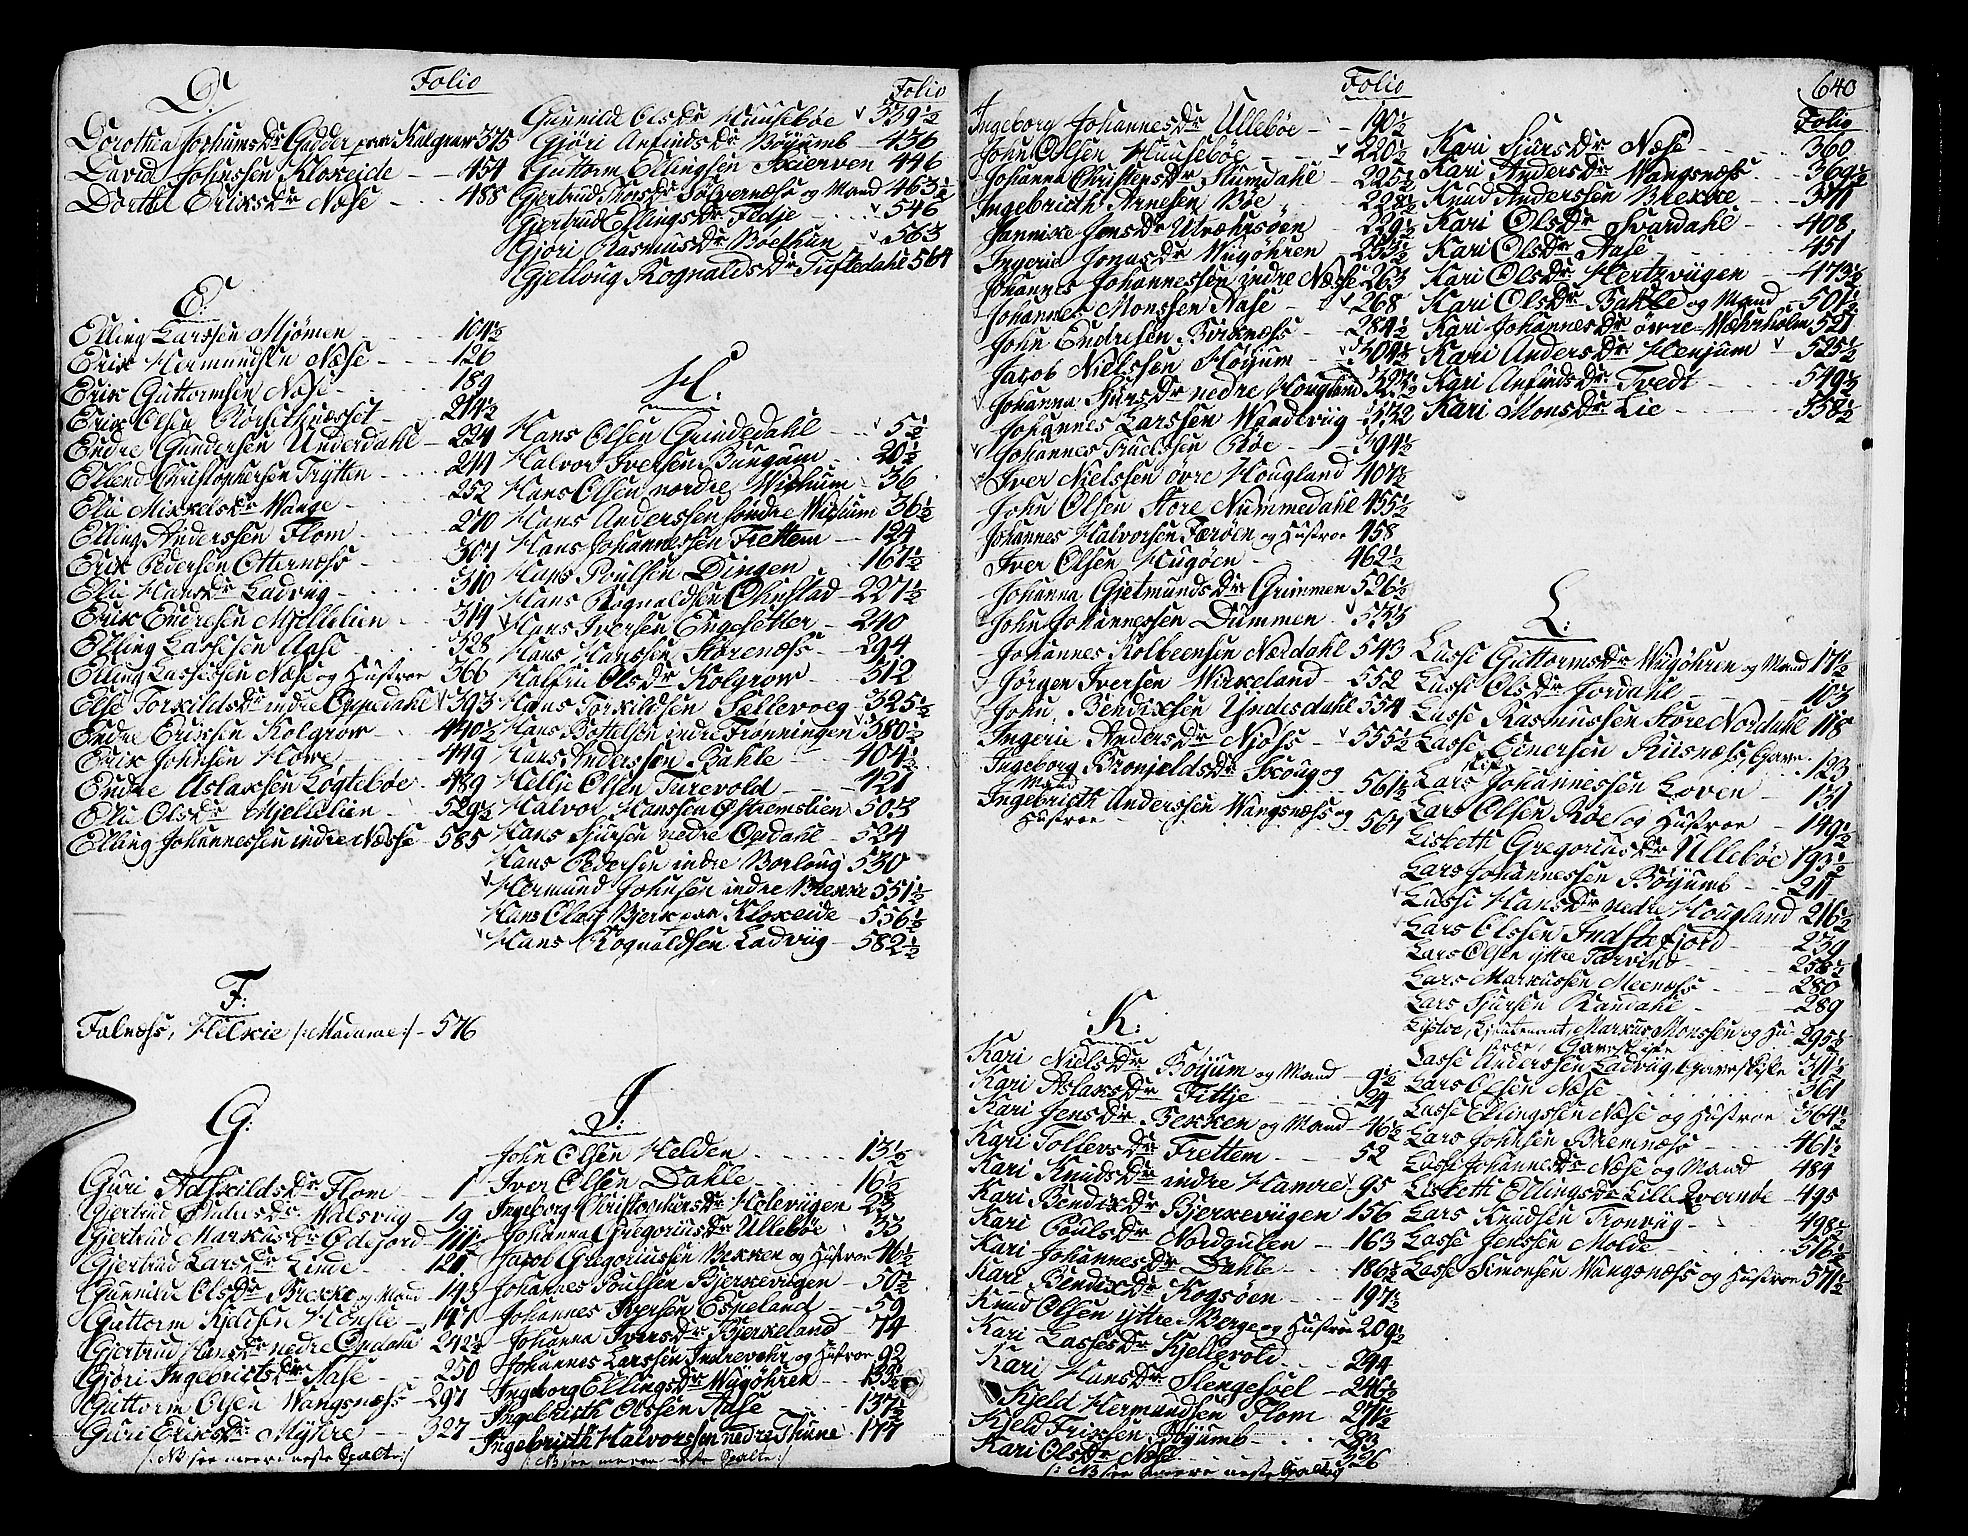 D.
Folio
Dorothea Jochumsdr Gadder paa Kalgrav 375
David Johnssen Kloxeide - - 454
Dorthe Eriksdr Næse - - - 488
E:
Elling Larssen Mjömen - - - 104½
Erik Hermundsen Næse - - - 126
Erik Guttormsen Næse - - - 189
Erik Olsen - - 214½
Endre Gundersen Underdahl - 224
Erlend Christophersen Trytten - - - 244
Eli Mikkelsdr Wange - - - 252
Elling Anderssen Flom - - - 270
Erik Pedersen Otternæss - - - 307
Eli Hansdr Ladvüg - - - 310
Erik Endresen Mjellelien - - 314
Elling Lassesen Aase - - - 328
Elling Lassessen Næse og Hustroe 366
Else Torkildsdr indre Oppedahl v 393
Endre Erikssen Kolgrow - - 440½
Erik Johnsen Howe - - - 449
Endre Aslaksen Lögtebøe - 489
Eli Olsdr Mjellelien - - 529½
Elling Johannessen indre Næsse - 585
F:
Falnæss, Helkie /:Madame:/ - 576
G:
Guri Adskildsdr Flom - - - 1
Gjertrud Walsvüg - 19
Gjertrud Markusdr Ødefjord - 111
Gjertrud Larsdr Linde - - 121
Gunnild Olsdr Brekke og Mand - 193
Guttorm Kjelsen Hönsie - 197
Gjertrud Hansdr nedre Opdahl 242½
Gjöri Ingebrictsdr Aase - - 250
Guttorm Olsen Wangsnæss - 297
Guri Eriksdr Myhre - - - 327
/: NB see meere neste Spalte:/
Folio
Gunnild Olsdr Huusebøe v 339½
Gjöri Anfindsdr Böyumb - 436
Guttorm Ellingsen Skierven 446
Gjertrud Thorsdr Sölvernæse og Mand 463½
Gjertrud Ellingsdr Fedje - - v 546
Gjöri Rasmusdr Bøethun - v 563
Gjellvig Rognaldsdr Tuftedahl 564
H:
Hans Olsen Grindedahl - - v 5½
Halvor Iversen Bungum - - 20½
Hans Olsen nordre Wichum - 36
Hans Anderssen söndre Wichum 36½
Hans Johannessen Frettem - - 124
Hans Poulsen Dingen - - 167½
Hans Rognaldsen Ohnstad - 227½
v Hans Iversen Engesetter - - 240
Hans Hanssen Storenæss - - 294
Halfri Olsdr Kolgrow - - 312
Hans Torkildsen Sellevoeg - 325½
Hans Bottelsen indre Frønningen v 380½
Hans Anderssen Bahle - - - 404½
Hellje Olsen Turevold - - - 421
Halvor Hanssen Östremslien 503
Hans Sjursen nedre Opdahl - 524
Hans Pedersen indre Borloug 530
v Hermund Johnsen indre Brekke 551½
Hans Olsen Bjerk paa Kloxeide - 556½
v Hans Rognaldsen Ladvüg - 582½
I:
John Olsen Helden - - - 13½
Iver Olsen Dahle - - - 16½
Ingeborg Christophersdr Holevügen 23
Johanna Gregoriusdr Ullebøe - - 33
Jacob Gregoriussen Bekken og Hustroe 46½
Johannes Poulsen Bjerkevügen - 50½
Johannes Iversen Espeland - - 59
Johanna Iversdr Bjerkeland - 74
Johannes Larssen Indrevohr og Hustroe 92
Ingeborg Ellingsdr Wügöhren - 133½
Ingebricth Olssen Aase - - - 137½
Ingebricth Halvorssen nedre Thune 177
/: NB see meere neste Spalte:/
Folio
Ingeborg Johannesdr Ullebøe - - 190½
John Olsen Huusebøe - - - v 220½
Johanna Christensdr Slumdahl 225½
Ingebricth Arnesen Bøe - - - 228½
Jannike Jensdr - 229½
Ingerid Jonasdr Wügöhren - - 233½
Johannes Johannessen indre Næsse 263
Johannes Monssen Aase - - v 268
John Endresen Birknæss - - - 284½
Jacob Nielssen Höyum - - v 304½
v Johanna Sjursdr nedre Hougland 322½
Johannes Larssen Wandevüg - 353½
v Johannes Truelssen Röe - - - 394½
Iver Nielssen övre Hougland 407½
John Olsen Store Nummedahl 455½
Johannes Halvorsen Færöen og Hustroe 458
Iver Olsen Hugöen - - - 462½
Johanna Gjetmundsdr Grimmen 526½
John Johannessen Dummen v 533
Johannes Kolbeensen Næsdahl 543
v Jørgen Iversen Wirkeland - - 552
v John Bendixsen Undesdahl 554
Ingeri Andersdr Njöss - - v 555½
Ingeborg Bronjeldsdr Skoug og
Mand - - - 561½
Ingebricth Anderssen Wangsnæss og
Hustroe - - - - - 567
K:
Kari Nielsdr Böyum og Mand - 9½
Kari Aslaksdr Fittje - - - 29
Kari Jensdr Bekken og Mand - 46½
Kari Tollevsdr Frettem - - - 52
Kari Knudsdr indre Hamre v 95
Kari Bendixdr Bjerkevügen 156
Kari Poulsdr Nordgulen - - 163
Kari Johannesdr Dahle - - - 186½
Kari Bendixdr Rogsöen - - - 197½
Knud Olsen yttre Berge og Hustroe 209½
Kari Lassesdr Kjellevold - - - 244
Kari Hansdr Slengesöel - - 246½
Kjeld Hermundsen Flom - - 271½
Kjeld Frikssen Böyumb - - - 293
Kari Olsdr Næse - - - 326
/: NB see meere neste Spalte:/
640
Folio
Kari Siursdr Næse - - - - 360
Kari Andersdr Wangsnæss - - - 369½
Knud Anderssen Brekke - - - 371
Kari Olsdr Svardahl - - - 408
Kari Olsdr Aase - - - - 451
Kari Olsdr Hertzvügen - - - 473½
Kari Olsdr Bahle og Mand - 501½
Kari Johannesdr övre Wæhrholm 521
Kari Andersdr Henjum v - 525½
Kari Anfindsdr Tvedt - - - 549½
Kari Monsdr Lie - - - - 558½
L:
Lasse Guttormsdr Wügöhren og Mand 17½
Lasse Olsdr Jordahl - - - 103
Lasse Rasmussen Store Nordahl 118
Lasse Einersen Rusnæss, Gave
skifte - - - 123
Lars Johannessen Loven - - 131
Lars Olsen Röe og Hustroe - - 149½
Lisbeth Gregoriusdr Ullebøe 193½
Lars Johannessen Böyumb - - 211
v Lassi Hansdr nedre Hougland 216½
Lars Olssen Indstefjord - - 239
Lars Olsen yttre Tærvind - - 258½
Lars Markussen Meenæss - - - 280
Lars Sjursen Randahl - - - 289
Lystoe, Lieutenant, Markus Monssen og Hu-
stroe, Gaveskifte - - - 295½
Lasse Anderssen Ladvüg, Gaveskifte 311½
Lars Olsen Næse - - - - 361
Lasse Ellingssen Næse og Hustroe - 364½
Lars Johnsen Bremnæss - - - 461½
Lassi Johannesdr Næse og Mand - 484
Lisbeth Ellingsdr Lille Qvernöe - 495
Lars Knudsen Tronvüg - - - 498½
Lasse Jenssen Molde - - - 516½
Lasse Simonsen Wangsnæss og Hustroe 571½